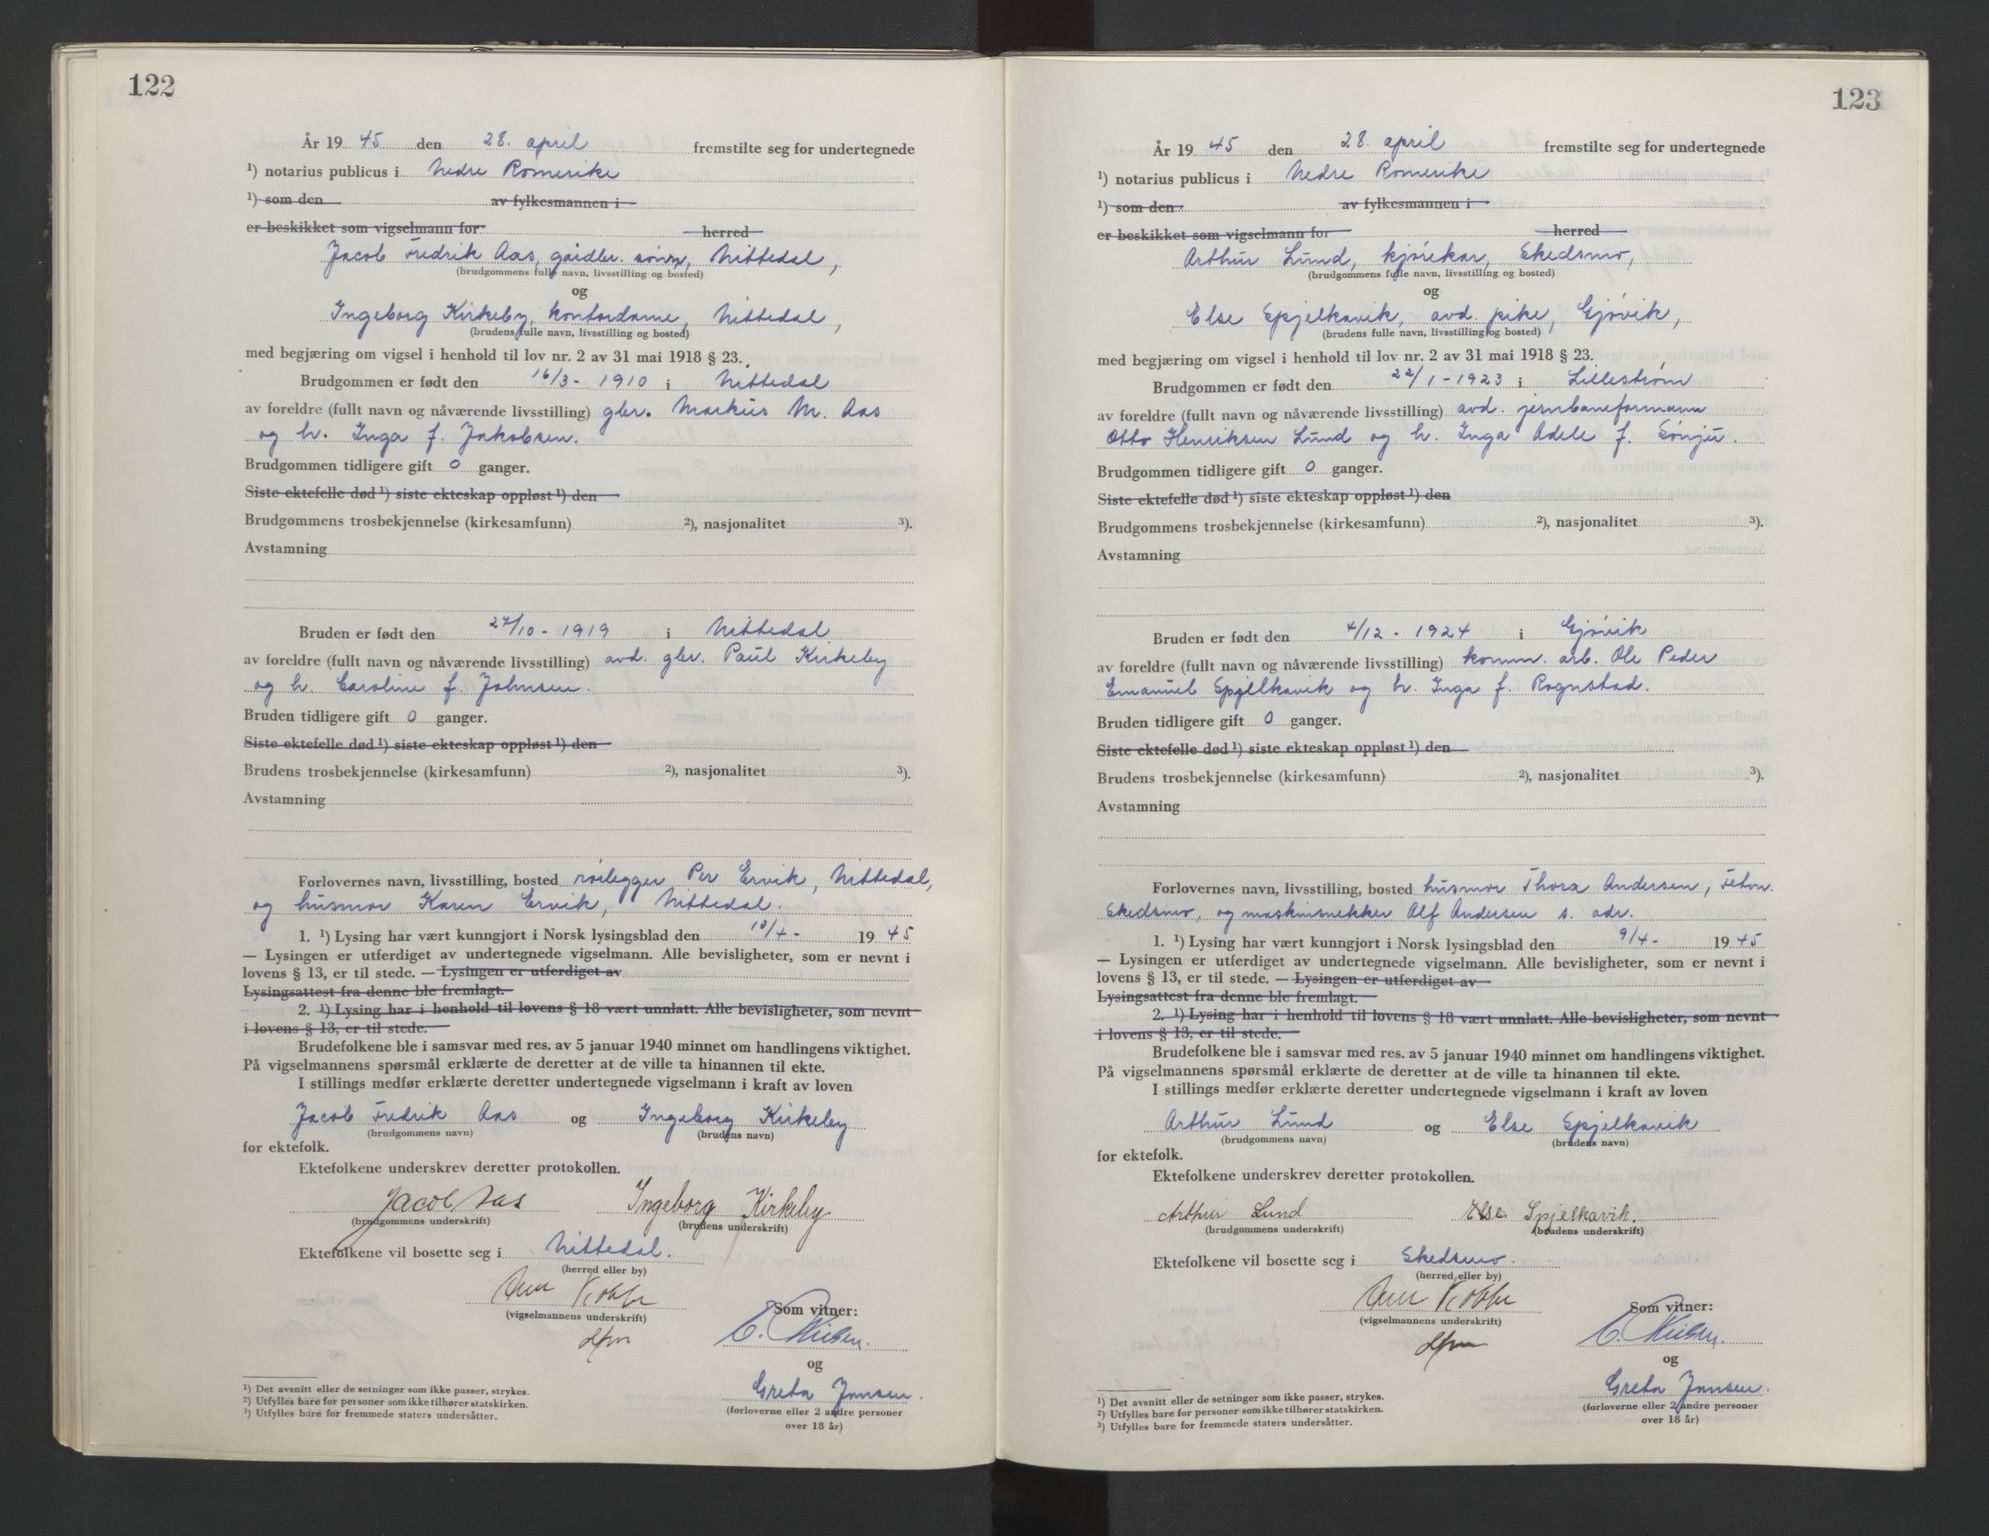 122
År 1945 den 28. april fremstilte seg for undertegnede
¹) notarius publicus i Nedre Romerike
¹) som den av fylkesmannen i
er beskikket som vigselmann for herred
Jacob Fredrik Aas, gårdbr. sønn, Nittedal,
(brudgommens fulle navn, livsstilling og bosted)
og
Ingeborg Kirkeby, kontordame, Nittedal,
(brudens fulle navn, livsstilling og bosted)
med begjæring om vigsel i henhold til lov nr. 2 av 31 mai 1918 § 23.
Brudgommen er født den 16/3 - 1910 i Nittedal
av foreldre (fullt navn og nåværende livsstilling) gbr. Markus M. Aas
og h. Inga f. Jakobsen.
Brudgommen tidligere gift 0 ganger.
Siste ektefelle død ¹) siste ekteskap oppløst ¹) den
Brudgommens trosbekjennelse (kirkesamfunn) ²), nasjonalitet ³).
Avstamning
Bruden er født den 27/10 - 1919 i Nittedal
av foreldre (fullt navn og nåværende livsstilling) avd. gbr. Paul Kirkeby
og h. Caroline f. Johnsen.
Bruden tidligere gift 0 ganger.
Siste ektefelle død ¹) siste ekteskap oppløst ¹) den
Brudens trosbekjennelse (kirkesamfunn) ²), nasjonalitet ³).
Avstamning
Forlovernes navn, livsstilling, bosted rørlegger Per Ervik, Nittedal,
og husmor Karen Ervik, Nittedal.
1. ¹) Lysing har vært kunngjort i Norsk lysingsblad den 10/4 - 1945
— Lysingen er utferdiget av undertegnede vigselmann. Alle bevisligheter, som er nevnt i
lovens § 13, er til stede. — Lysingen er utferdiget av
Lysingsattest fra denne ble fremlagt.
2. ¹) Lysing har i henhold til lovens § 18 vært unnlatt. Alle bevisligheter, som nevnt
i lovens § 13, er til stede.
Brudefolkene ble i samsvar med res. av 5 januar 1940 minnet om handlingens viktighet.
På vigselmannens spørsmål erklærte de deretter at de ville ta hinannen til ekte.
I stillings medfør erklærte deretter undertegnede vigselmann i kraft av loven
Jacob Fredrik Aas og Ingeborg Kirkeby
(brudgommens navn) (brudens navn)
for ektefolk.
Ektefolkene underskrev deretter protokollen.
Jacob Aas Ingeborg Kirkeby
(brudgommens underskrift) (brudens underskrift)
Ektefolkene vil bosette seg i Nittedal.
(herred eller by)
Som vitner:
(vigselmannens underskrift)
C. Nielsen.
og
Greta Jansen.
(forloverne eller 2 andre personer
over 18 år)
¹) Det avsnitt eller de setninger som ikke passer, strykes.
²) Utfylles bare for personer som ikke tilhører statskirken.
³) Utfylles bare for fremmede staters undersåtter.
123
År 1945 den 28. april fremstilte seg for undertegnede
¹) notarius publicus i Nedre Romerike
¹) som den av fylkesmannen i
er beskikket som vigselmann for herred
Arthur Lund, kjørekar, Skedsmo,
(brudgommens fulle navn, livsstilling og bosted)
og
Else Spjelkavik, avd. pike, Gjøvik,
(brudens fulle navn, livsstilling og bosted)
med begjæring om vigsel i henhold til lov nr. 2 av 31 mai 1918 § 23.
Brudgommen er født den 22/1 - 1923 i Lillestrøm
av foreldre (fullt navn og nåværende livsstilling) avd. jernbaneformann
Otto Henriksen Lund og h. Inga Adele f. Sønju.
Brudgommen tidligere gift 0 ganger.
Siste ektefelle død ¹) siste ekteskap oppløst ¹) den
Brudgommens trosbekjennelse (kirkesamfunn) ²), nasjonalitet ³).
Avstamning
Bruden er født den 4/12 - 1924 i Gjøvik
av foreldre (fullt navn og nåværende livsstilling) komm. arb. Ole Peder
Emanuel Spjelkavik og h. Inga f. Rognstad.
Bruden tidligere gift 0 ganger.
Siste ektefelle død ¹) siste ekteskap oppløst ¹) den
Brudens trosbekjennelse (kirkesamfunn) ²), nasjonalitet ³).
Avstamning
Forlovernes navn, livsstilling, bosted husmor Thora Andersen,
Skedsmo, og maskinsnekker Alf Andersen s. adr.
1. ¹) Lysing har vært kunngjort i Norsk lysingsblad den 9/4 - 1945
— Lysingen er utferdiget av undertegnede vigselmann. Alle bevisligheter, som er nevnt i
lovens § 13, er til stede. — Lysingen er utferdiget av
Lysingsattest fra denne ble fremlagt.
2. ¹) Lysing har i henhold til lovens § 18 vært unnlatt. Alle bevisligheter, som nevnt
i lovens § 13, er til stede.
Brudefolkene ble i samsvar med res. av 5 januar 1940 minnet om handlingens viktighet.
På vigselmannens spørsmål erklærte de deretter at de ville ta hinannen til ekte.
I stillings medfør erklærte deretter undertegnede vigselmann i kraft av loven
Arthur Lund og Else Spjelkavik
(brudgommens navn) (brudens navn)
for ektefolk.
Ektefolkene underskrev deretter protokollen.
Arthur Lund Else Spjelkavik.
(brudgommens underskrift) (brudens underskrift)
Ektefolkene vil bosette seg i Skedsmo.
(herred eller by)
Som vitner:
(vigselmannens underskrift)
C. Nielsen.
og
Greta Jansen.
(forloverne eller 2 andre personer
over 18 år)
¹) Det avsnitt eller de setninger som ikke passer, strykes.
²) Utfylles bare for personer som ikke tilhører statskirken.
³) Utfylles bare for fremmede staters undersåtter.